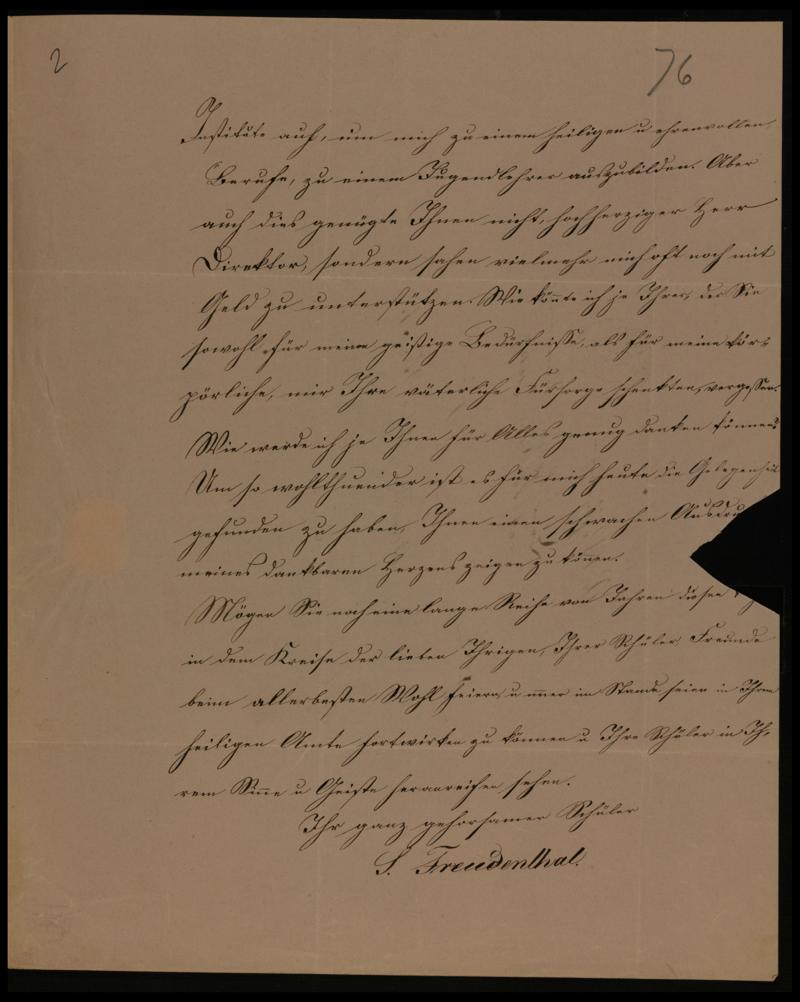 2
76
Institute auf, um mich zu einem heiligen u ehrenvollen
Berufe, zu einem Jugendlehrer auszubilden. Aber
auch dies genügte Ihnen nicht, hochherziger Herr
Direktor, sondern sahen vielmehr mich oft noch mit
Geld zu unterstützen. Wie könnte ich je Ihrer, der Sie
sowohl für meine geistige Bedürfnisse, als für meine kör-
pörliche, mir Ihre väterliche Fürsorge schenkten, vergessen.
Wie werde ich je Ihnen für Alles genug danken können
Um so wohlthuender ist es für mich heute die Gelegenheit
gefunden zu haben, Ihnen einen schwachen Ausdru
meines dankbaren Herzens zeigen zu können.
Mögen Sie noch eine lange Reihe von Jahren diesen
in dem Kreise der lieben Ihrigen, Ihrer Schüler Freunde
beim allerbesten Wohl feiern u immer im Stande seien in Ihrem
heiligen Amte fortwirken zu können u Ihre Schüler in Ih-
rem Sinne u Geiste heranreifen sehen.
Ihr ganz gehorsamer Schüler
S. Freudenthal.